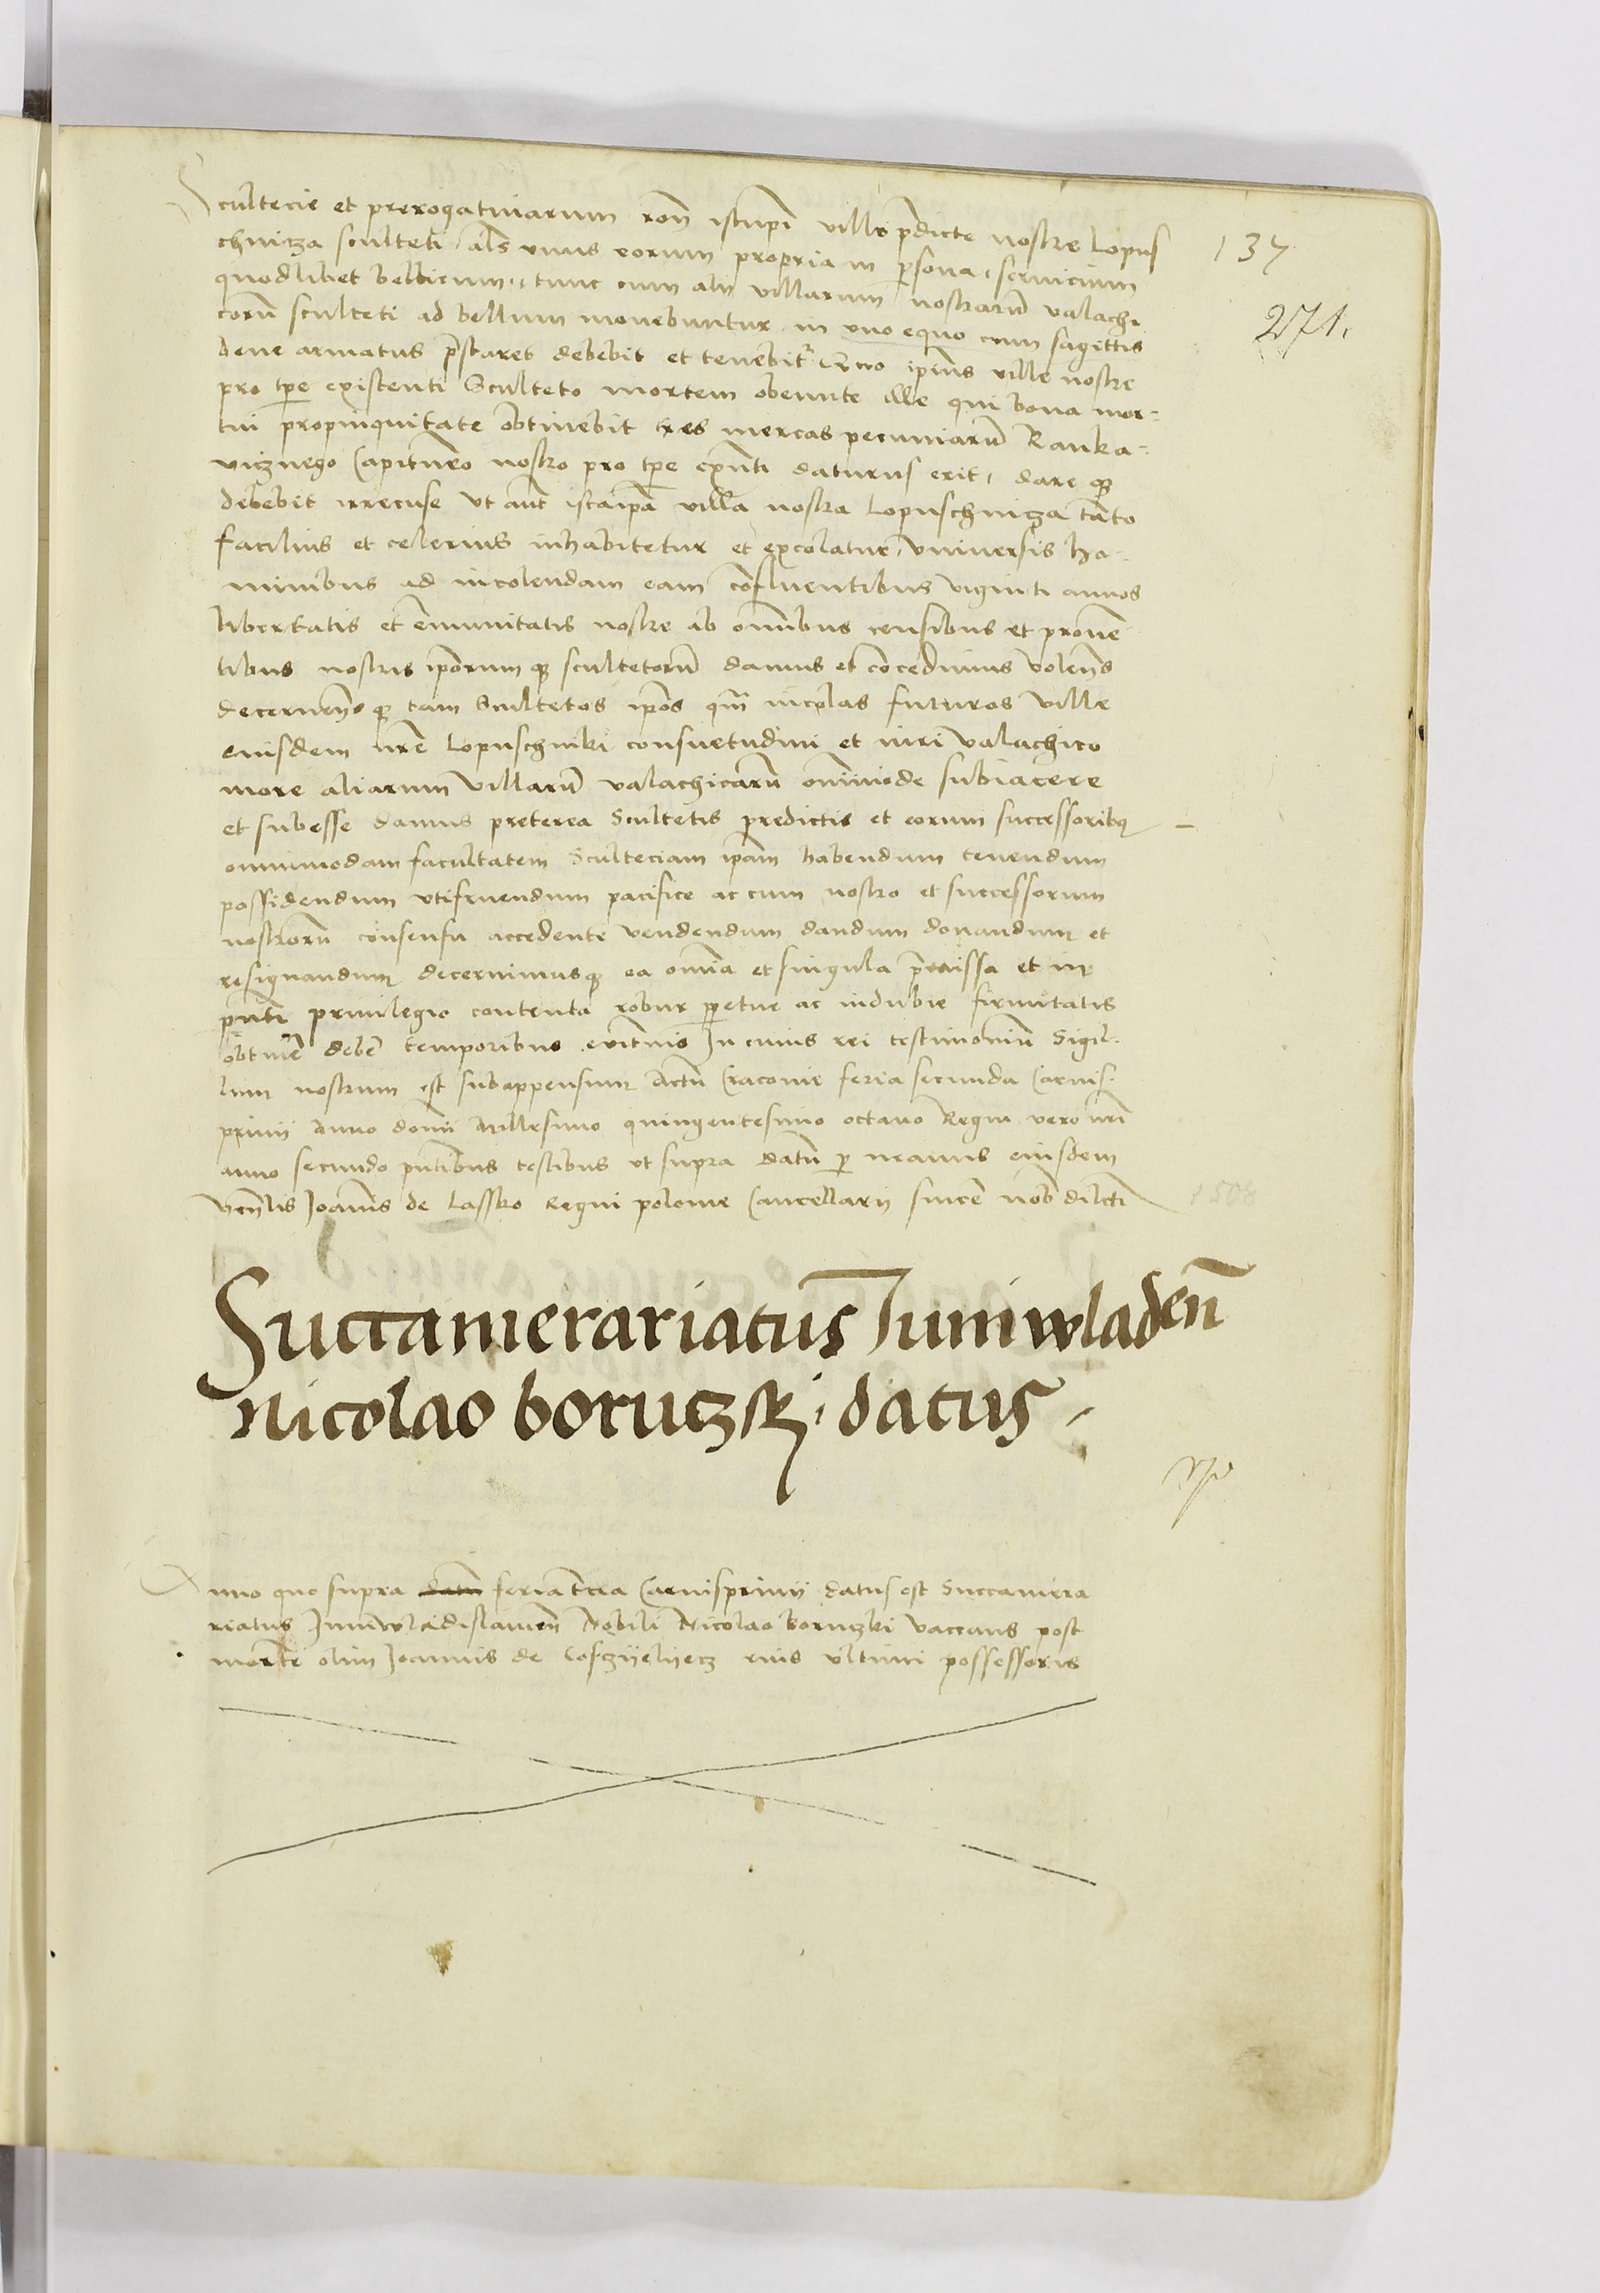 Scultecie et prerogativarum ron istiuspi ville pdicte nostre Lopus
chnicza sculteti als vnus eorum propria in psona servicium
quodlibet bellicum tunc cum alij villarum nostraru valachi
coru sculteti ad bellum movebuntur in vno equo cum sagittis
bene armatus pstare debebit et tenebitr Uno ipius ville nostre
pro tpe existenti Sculteto mortem obeunte ille qui bona mor-
tui propinquitate obtinebit tres mercas pecuniaru Banka-
vicznego Capitneo nostro pro tpe exnti daturus erit dare qz
debebit irrecuse Ut aut istaipa villa nostra Lopuschnicza tanto
facilius et celerius inhabitetur et excolatur, vniversis ho-
minibus ad incolendam eam confluentibus viginti annos
libertatis et emunitatis nostre ab omnibus censibus et proven
tibus nostris iporumqz scultetoru damus et concedimus volens
decernensqz tam Scultetos ipos qm incolas futuros ville
eiusdem nre Lopuschniki consuetudini et iuri valachico
more aliarum villaru valachicaru omimode subiacere
et subesse damus preterea Scultetis predictis et eorum successoribq
omnimodam facultatem Sculteciam ipam habendum tenendum
possidendum vtifruendum pacifice ac cum nostro et successorum
nostroru consensu accedente vendendum dandum donandum et
resignandum decernimusqz ea omia et singula pmissa et in
pnti privilegio contenta robur ppetue ac indubie firmitatis
obtinere debere temporibus evitnis In cuius rei testimoniu Sigil-
lum nostrum est subappensum Actu Cracovie feria secunda Carnis-
privij Anno domi Millesimo quingentesimo octavo Regni vero nri
anno secundo pntibus testibus vt supra datu p manus eiusdem
Venlis Joanis de Lassko Regni polonie Cancellarij sincere nob dilcti
137
271.
1508
Succamerariatus Iuniwladen
Nicolao boruczski datus
Anno quo supra datu feria tercia Carnisprivij datus est Succamera
riatus Juniwladislavien Nobili Nicolao boruczki vaccans post
morte olim Joannis de Cosczyelyecz eius vltimi possessoris